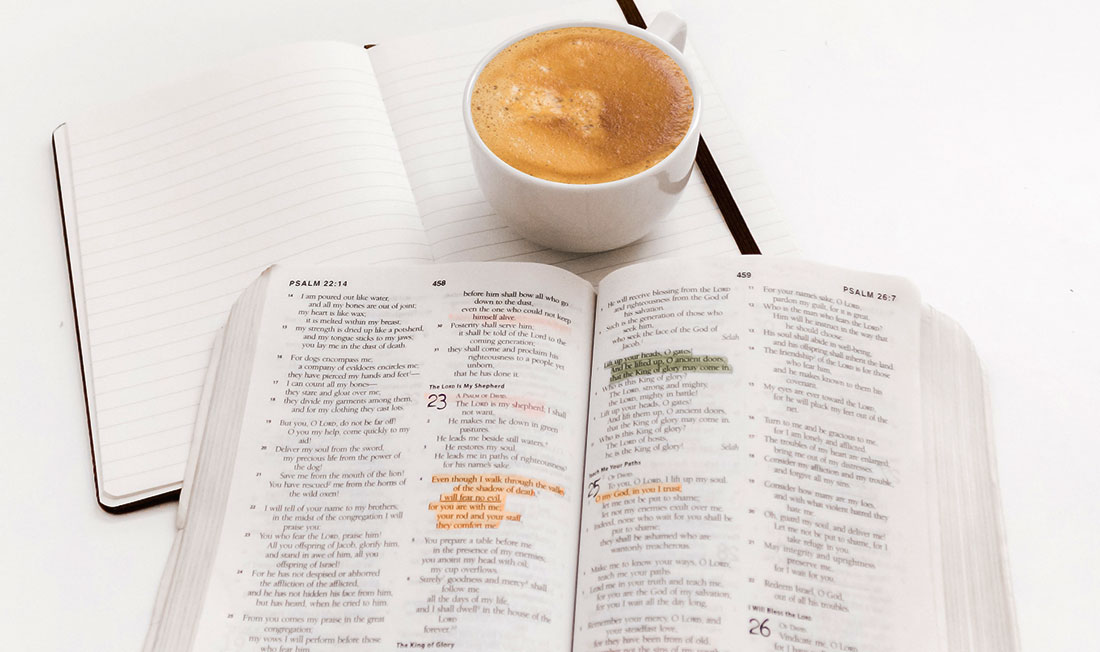 PSALM 22:14
458
14 I am poured out like water,
and all my bones are out of joint;
my heart is like wax;
it is melted within my breast;
15 my strength is dried up like a potsherd,
and my tongue sticks to my jaws;
you lay me in the dust of death.
16 For dogs encompass me;
a company of evildoers encircles me;
they have pierced my hands and feet—
17 I can count all my bones—
they stare and gloat over me;
18 they divide my garments among them,
and for my clothing they cast lots.
19 But you, O LORD, do not be far off!
O you my help, come quickly to my
aid!
20 Deliver my soul from the sword,
my precious life from the power of
the dog!
21 Save me from the mouth of the lion!
You have rescued me from the horns of
the wild oxen!
22 I will tell of your name to my brothers;
in the midst of the congregation I will
praise you:
23 You who fear the LORD, praise him!
All you offspring of Jacob, glorify him,
and stand in awe of him, all you
offspring of Israel!
24 For he has not despised or abhorred
the affliction of the afflicted,
and he has not hidden his face from him,
but has heard, when he cried to him.
25 From you comes my praise in the great
congregation;
my vows I will perform before those
who fear him.
before him shall bow all who go
down to the dust,
even the one who could not keep
himself alive.
30 Posterity shall serve him;
it shall be told of the Lord to the
coming generation;
31 they shall come and proclaim his
righteousness to a people yet
unborn,
that he has done it.
The LORD Is My Shepherd
23 A PSALM OF DAVID.
The LORD is my shepherd; I shall
not want.
2 He makes me lie down in green
pastures.
He leads me beside still waters.
3 He restores my soul.
He leads me in paths of righteousness
for his name's sake.
4 Even though I walk through the valley
of the shadow of death,
I will fear no evil,
for you are with me;
your rod and your staff,
they comfort me.
5 You prepare a table before me
in the presence of my enemies;
you anoint my head with oil;
my cup overflows.
6 Surely goodness and mercy shall
follow me
all the days of my life,
and I shall dwell in the house of the
LORD
forever.
The King of Glory
459
PSALM 26:7
He will receive blessing from the LORD
and righteousness from the God of
his salvation.
Such is the generation of those who
seek him,
who seek the face of the God of
Jacob.
Selah
Lift up your heads, O gates!
And be lifted up, O ancient doors,
that the King of glory may come in.
Who is this King of glory?
The LORD, strong and mighty,
the LORD, mighty in battle!
Lift up your heads, O gates!
And lift them up, O ancient doors,
that the King of glory may come in.
Who is this King of glory?
The LORD of hosts,
he is the King of glory!
Selah
Teach Me Your Paths
25 OF DAVID.
To you, O LORD, I lift up my soul.
O my God, in you I trust;
let me not be put to shame;
let not my enemies exult over me.
Indeed, none who wait for you shall be
put to shame;
they shall be ashamed who are
wantonly treacherous.
Make me to know your ways, O LORD;
teach me your paths.
Lead me in your truth and teach me,
for you are the God of my salvation;
for you I wait all the day long.
Remember your mercy, O LORD, and
your steadfast love,
for they have been from of old.
11 For your name's sake, O LORD,
pardon my guilt, for it is great.
12 Who is the man who fears the LORD?
Him will he instruct in the way that
he should choose.
13 His soul shall abide in well-being,
and his offspring shall inherit the land.
14 The friendship of the LORD is for those
who fear him,
and he makes known to them his
covenant.
15 My eyes are ever toward the LORD,
for he will pluck my feet out of the
net.
16 Turn to me and be gracious to me,
for I am lonely and afflicted.
17 The troubles of my heart are enlarged;
bring me out of my distresses.
18 Consider my affliction and my trouble,
and forgive all my sins.
19 Consider how many are my foes,
and with what violent hatred they
hate me.
20 Oh, guard my soul, and deliver me!
Let me not be put to shame, for I
take refuge in you.
21 May integrity and uprightness
preserve me,
for I wait for you.
22 Redeem Israel, O God,
out of all his troubles.
I Will Bless the LORD
26 OF DAVID.
Vindicate me, O LORD,